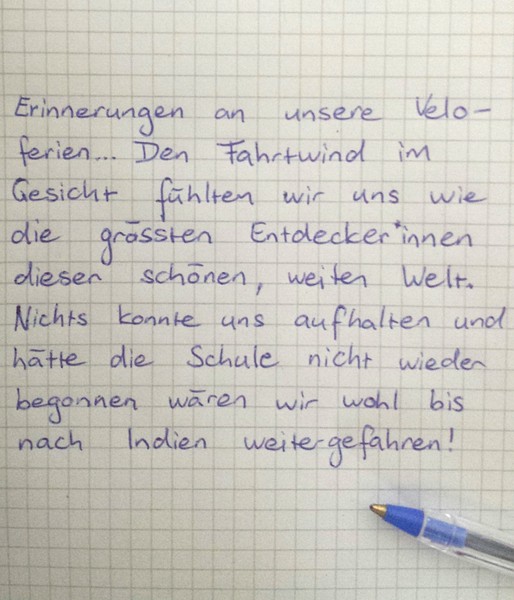 Erinnerungen an unsere Velo-
ferien... Den Fahrtwind im
Gesicht fühlten wir uns wie
die grössten Entdecker*innen
dieser schönen, weiten Welt.
Nichts konnte uns aufhalten und
hätte die Schule nicht wieder
begonnen wären wir wohl bis
nach Indien weitergefahren!